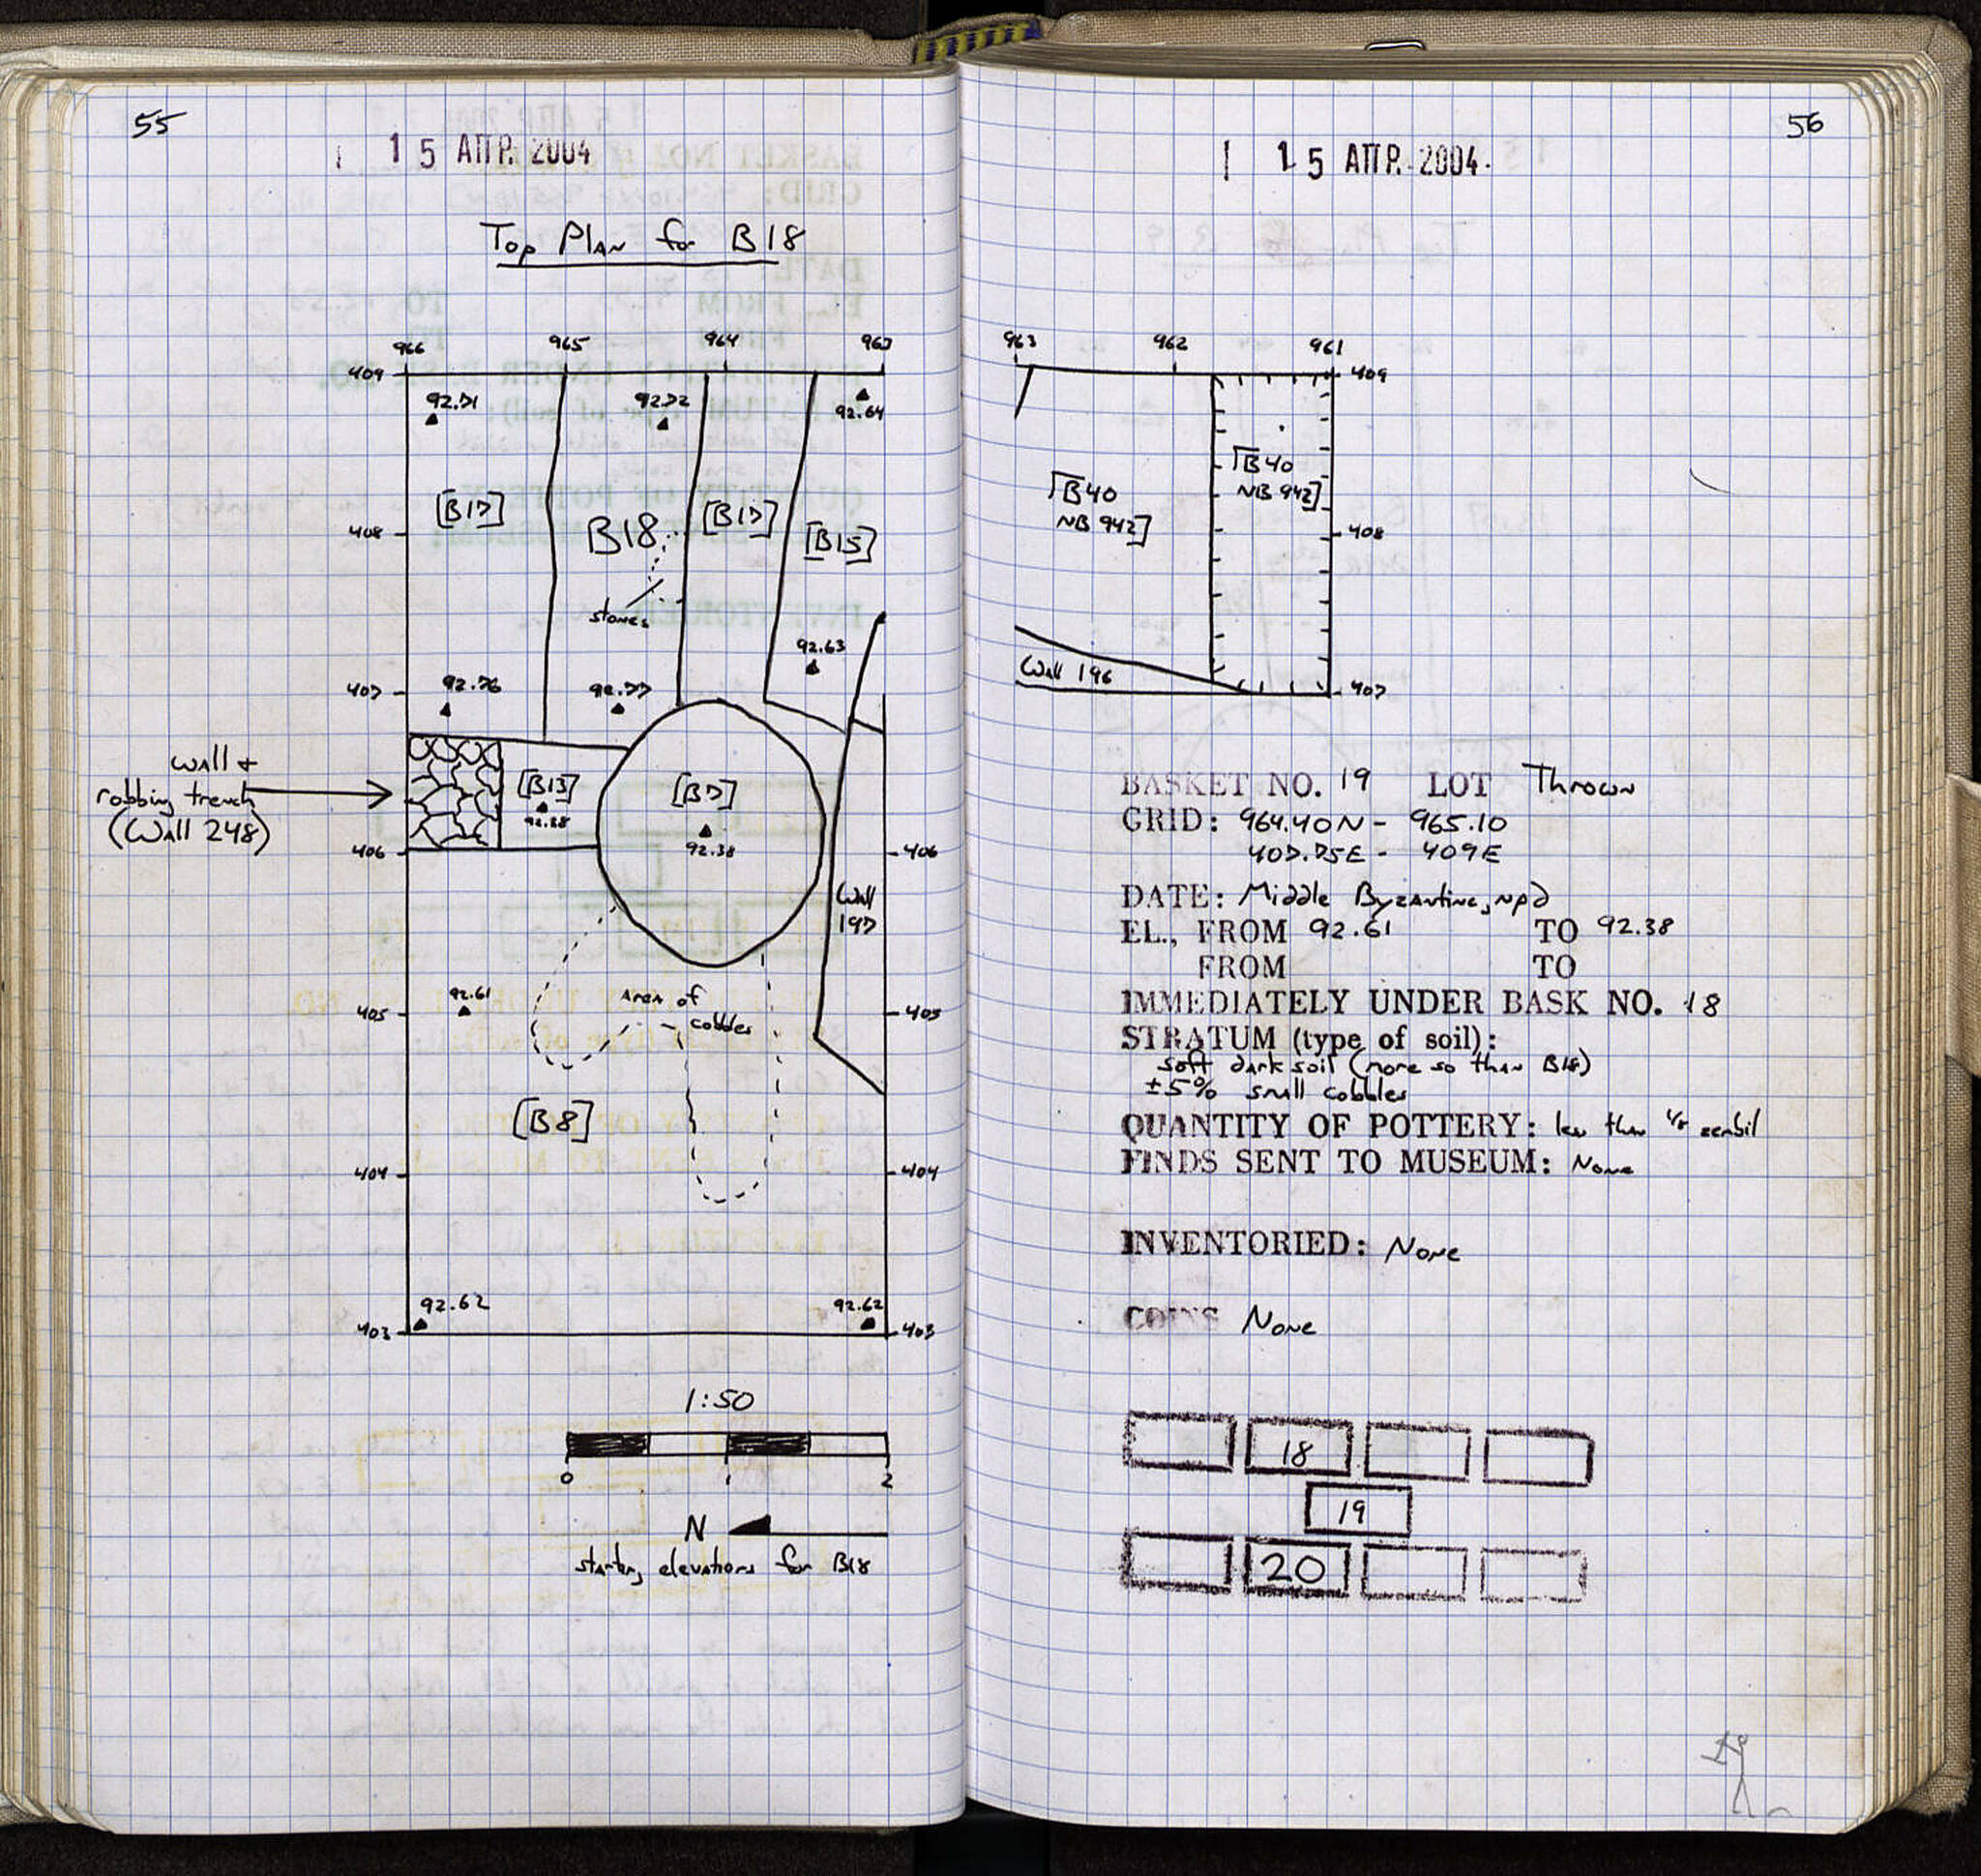 55
15 ΑΠΡ. 2004
Top Plan for B18
966 965 964 963
409
92.71 92.72 92.64
[B17] B18 [B17] [B15]
408
stones
92.63
407
92.76 92.77
wall +
robbing trench
(Wall 248)
[B13]
92.38
[B7]
92.38
406 406
Wall
197
92.61
area of
cobbles
405 405
[B8]
404 404
92.62 92.62
403 403
1:50
0 1 2
N
starting elevations for B18
56
15 ΑΠΡ. 2004
963 962 961
409
[B40
NB 942]
[B40
NB 942]
408
Wall 196
407
BASKET NO. 19 LOT Thrown
GRID: 964.40N - 965.10
407.75E - 409E
DATE: Middle Byzantine, npd
EL., FROM 92.61 TO 92.38
FROM TO
IMMEDIATELY UNDER BASK NO. 18
STRATUM (type of soil):
soft dark soil (more so than B18)
±5% small cobbles
QUANTITY OF POTTERY: less than zembil
FINDS SENT TO MUSEUM: None
INVENTORIED: None
COINS None
18
19
20